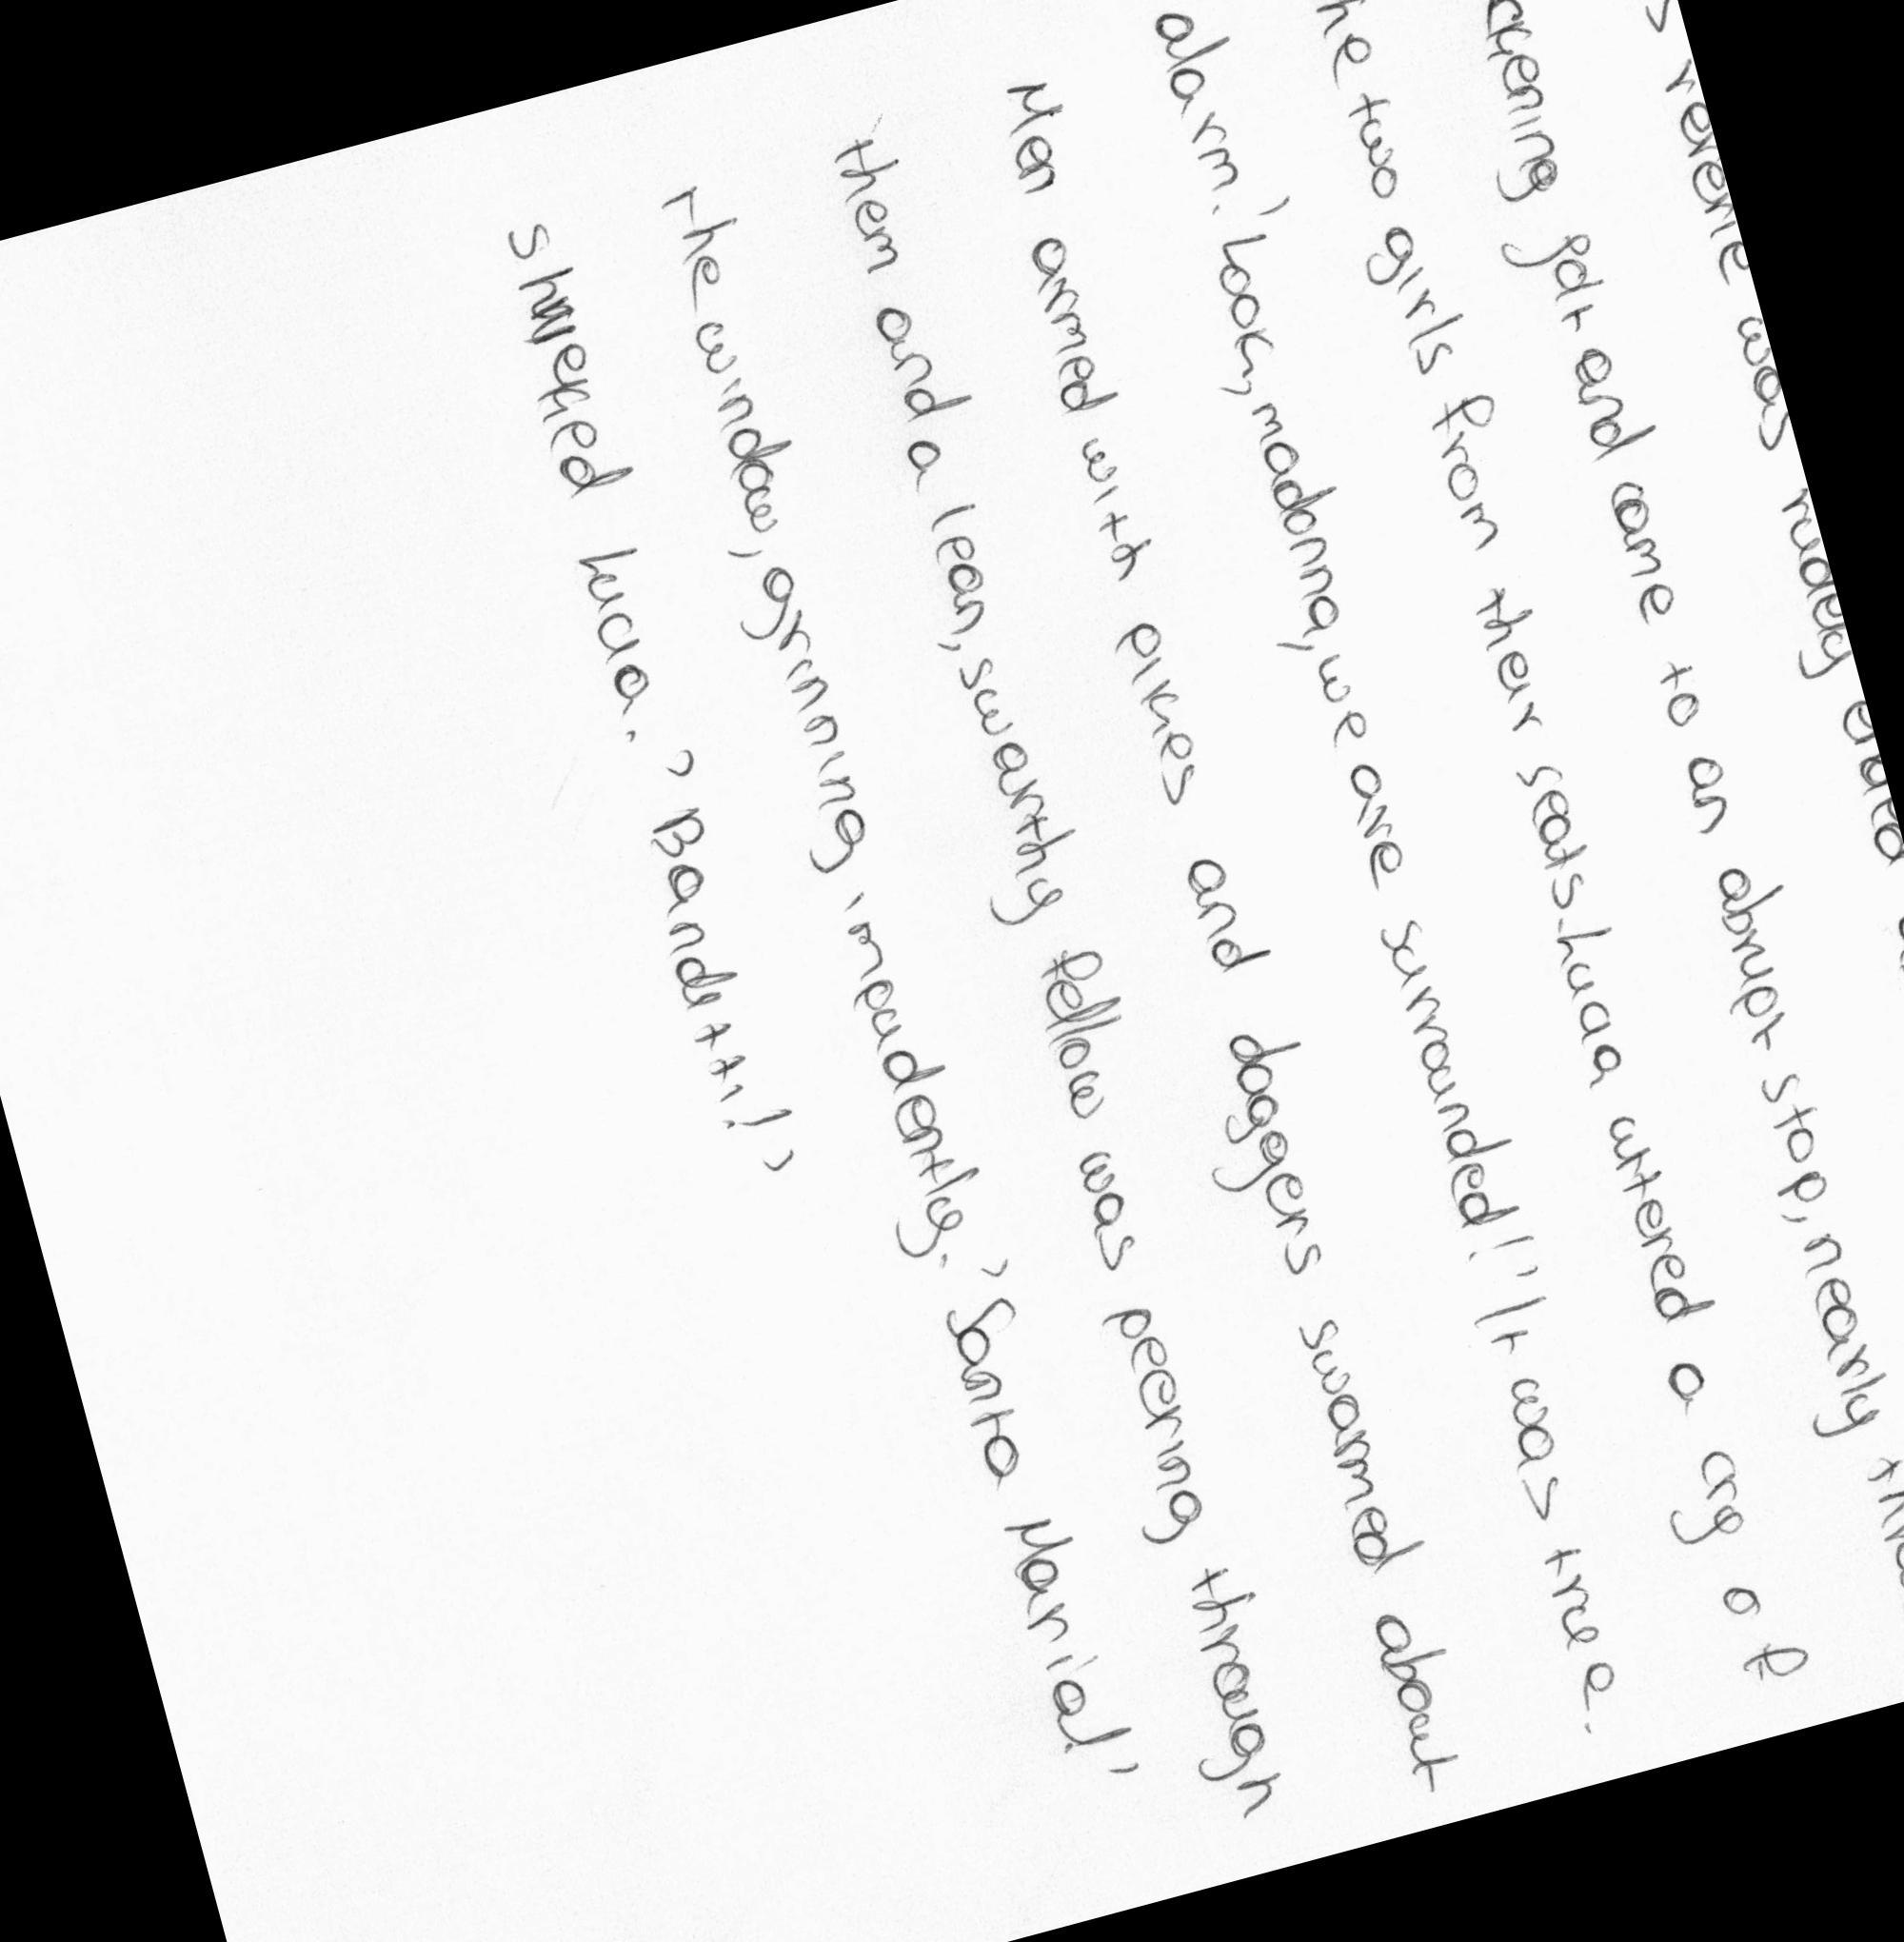 reverie was rudely ended
jolt and came to an abrupt stop, nearly
two girls from their seats. Lucia uttered a cry of
alarm. 'Look, madonna, we are surrounded!' It was true.
Men armed with pikes and daggers swarmed about
them and a lean, swarthy fellow was peering through
the window, grinning impudently. 'Santa Maria!'
shrieked Lucia. 'Banditti!'